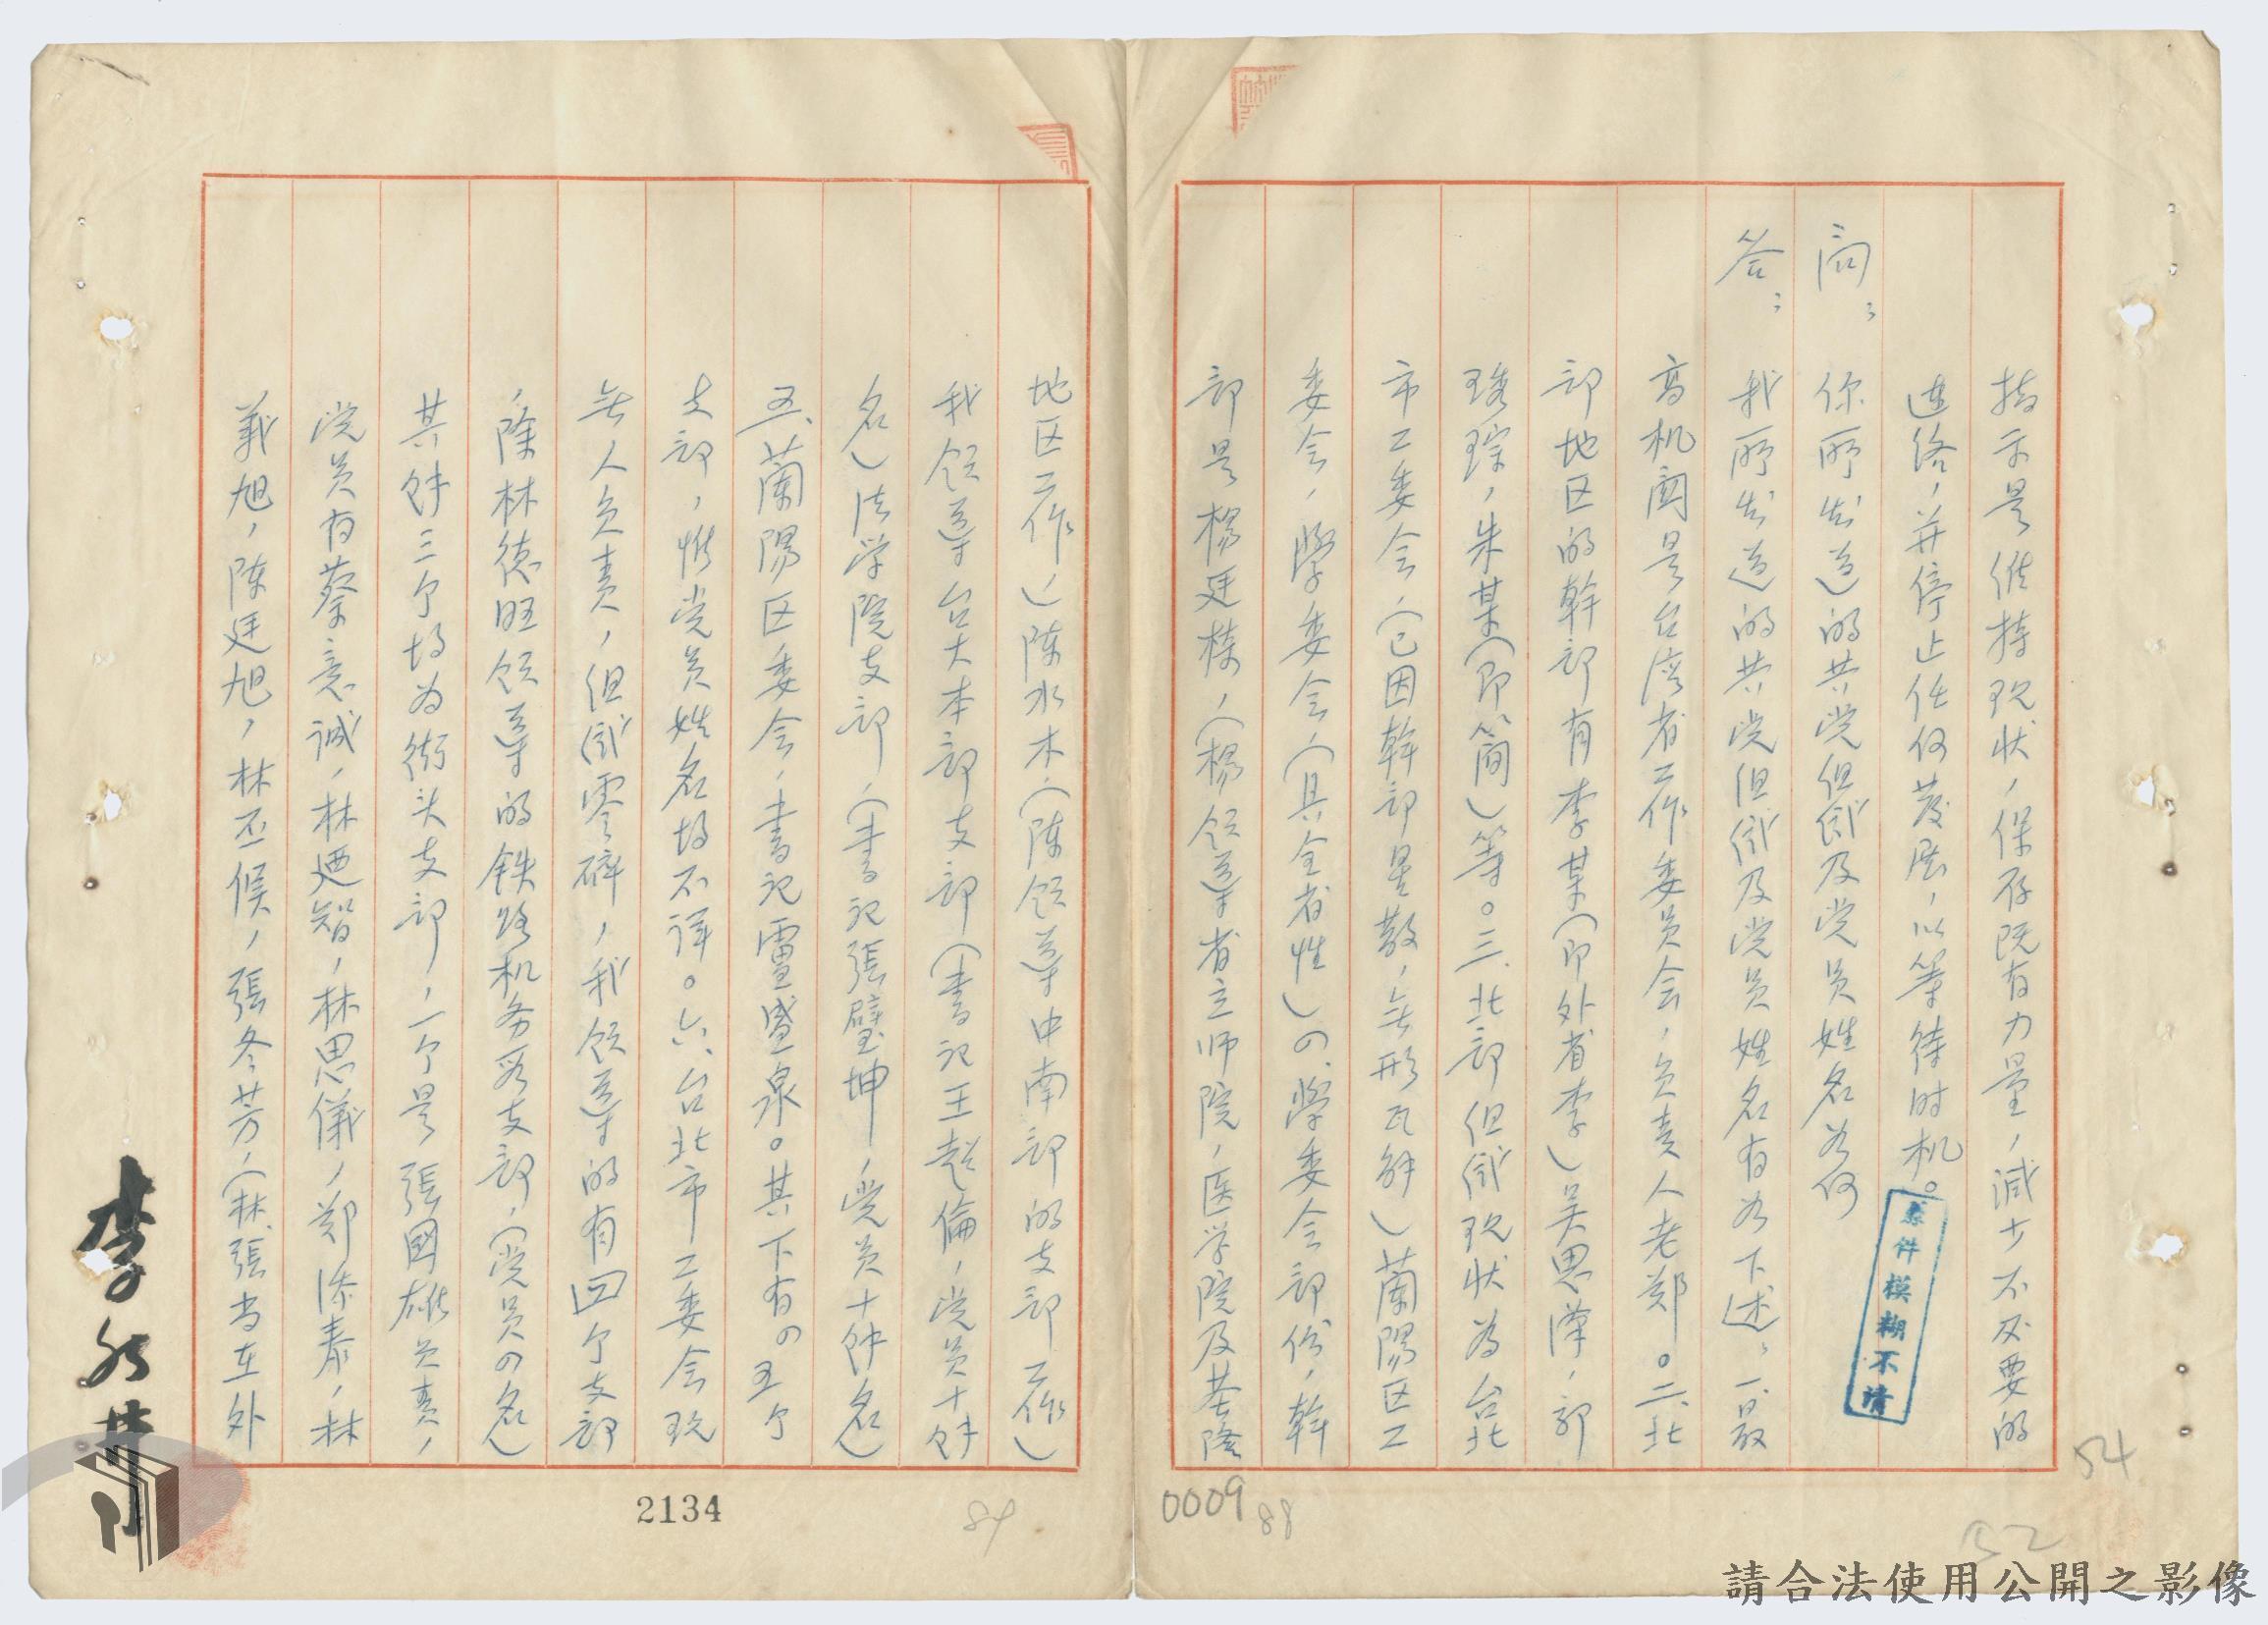 指示是維持現狀，保存既有力量，減少不必要的
連絡，并停止任何發展，以等待时机。
問：你所知道的共党組織及党员姓名为何
答：我所知道的共党組織及党员姓名有为下述，一、最
高机関是台湾省工作委员会，负责人老郑。二、北
部地区的幹部有李某（即外省李）吴思漢，郭
琇琮，朱某（即簡）等。三、北部組織現状為台北
市工委会，（已因幹部星散，無形瓦解）蘭陽区工
委会，學委会，（具全省性）の、學委会部份，幹
部是楊廷椅，（楊領導省立师院，医学院及基隆
地区工作）陳水木，（陳領導中南部的支部工作）
我領導台大本部支部（書記王超倫，党员十餘
名）法学院支部，（書記張璧坤，党员十餘名）
五、蘭陽区委会，書記盧盛泉。其下有の五个
支部，惟党员姓名均不詳。六、台北市工委会現
無人负责，但組織零碎，我領導的有四个支部
，除林德旺領導的铁路机务段支部，（党员の名）
其餘三个均为街头支部，一个是張國雄负责，
党员有蔡意誠，林迺智，林思儀，郑添泰，林
義旭，陳廷旭，林丕候，張冬芳，（林、張为在外
李水井
悉件模糊不清
54
52
0009
88
84
2134
請合法使用公開之影像